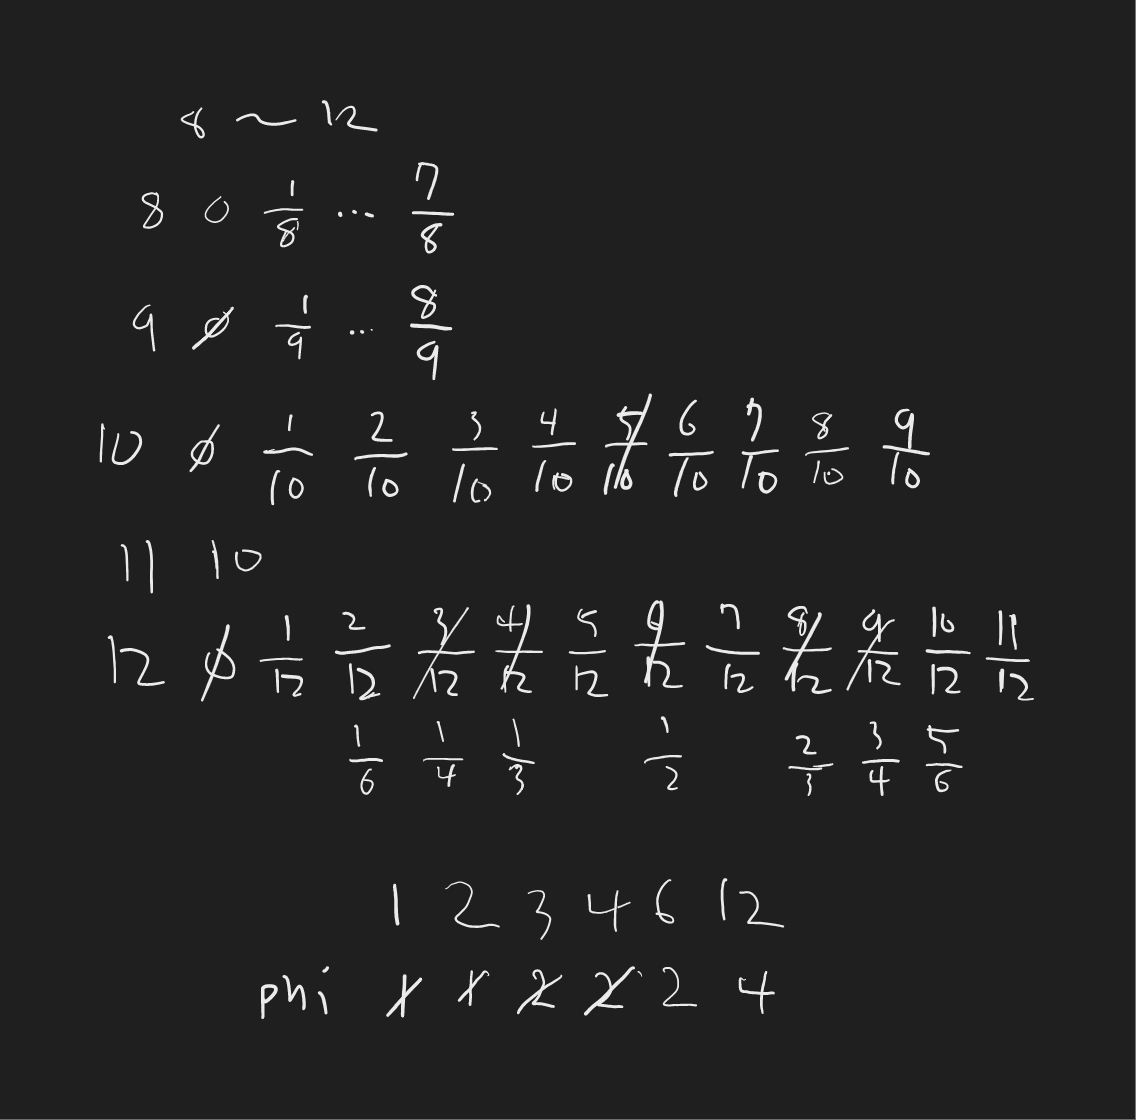 8 ~ 12
8 0 1/8 ... 7/8
9 0 1/9 ... 8/9
10 0 1/10 2/10 3/10 4/10 5/10 6/10 7/10 8/10 9/10
11 10
12 0 1/12 2/12 3/12 4/12 5/12 6/12 7/12 8/12 9/12 10/12 11/12
1/6 1/4 1/3 1/2 2/3 3/4 5/6
1 2 3 4 6 12
phi 1 1 2 2 2 4